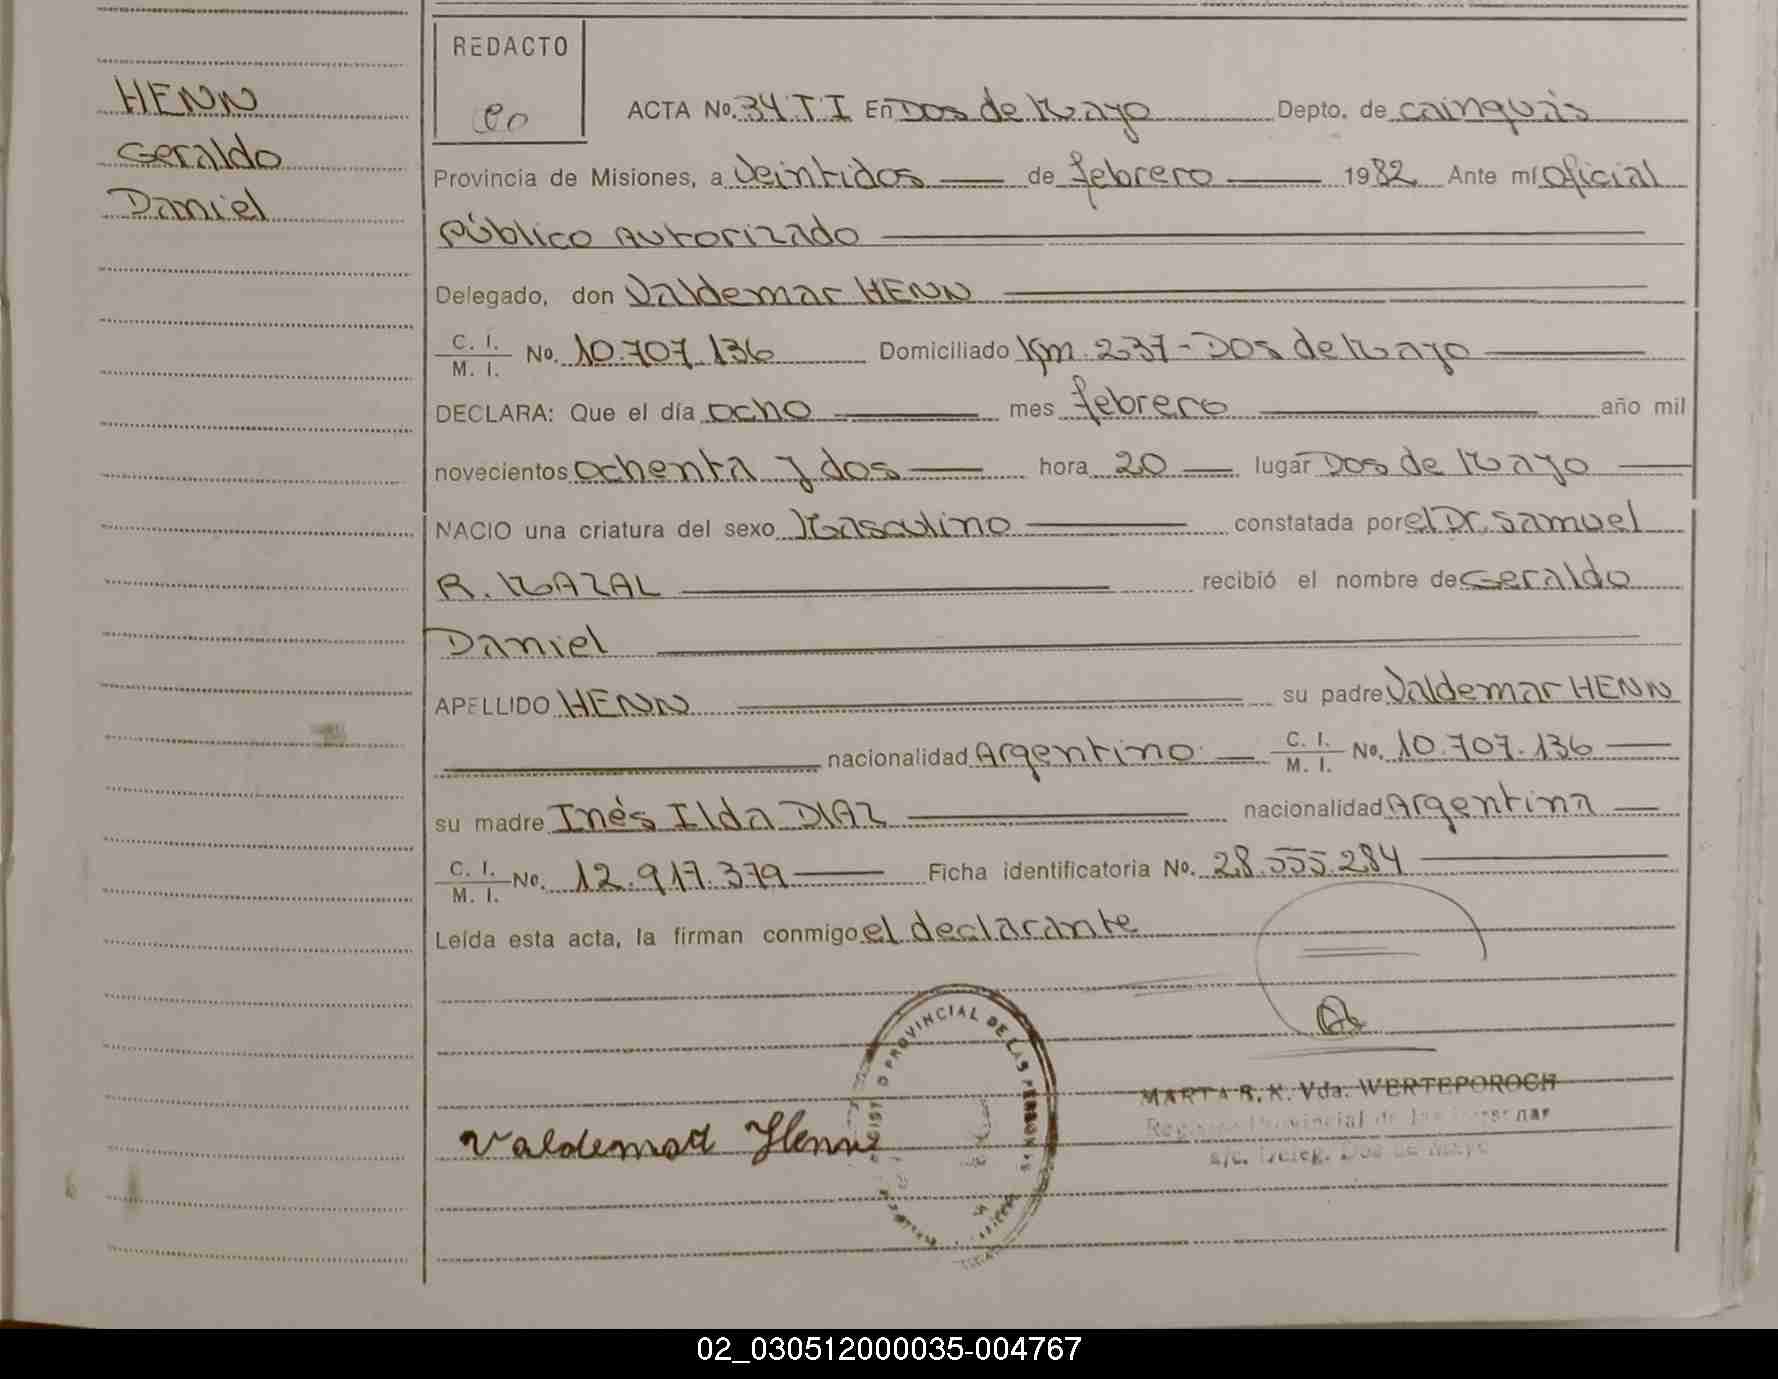 HENN
Geraldo
Daniel
REDACTO
ACTA No. 34 T I En Dos de Mayo Depto. de cainguás
Provincia de Misiones, a Veintidos de febrero 1982 Ante mí oficial
Público Autorizado
Delegado, don Valdemar HENN
C. I.
M. I. No. 10.707.136 Domiciliado Km. 237 - Dos de Mayo
DECLARA: Que el día ocho mes febrero año mil
novecientos ochenta y dos hora 20 lugar Dos de Mayo
NACIO una criatura del sexo Masculino constatada por el Dr. Samuel
R. MAZAL recibió el nombre de Geraldo
Daniel
APELLIDO HENN su padre Valdemar HENN
nacionalidad Argentino C. I.
M. I. No. 10.707.136
su madre Inés Ilda DIAZ nacionalidad Argentina
C. I.
M. I. No. 12.917.379 Ficha identificatoria No. 28.555.284
Leída esta acta, la firman conmigo el declarante
PROVINCIAL DE LAS PERSONAS
MARTA R. K. Vda. WERTEPOROCH
Registro Provincial de las Personas
a/c. Deleg. Dos de Mayo
Valdemar Henn
02_030512000035-004767